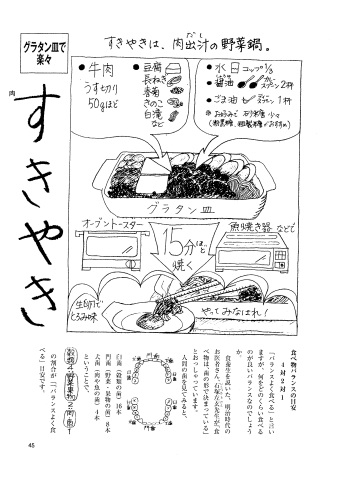 グラタン皿で
楽々
肉
すきやき
すきやきは、肉出汁の野菜鍋。
だし
●牛肉
うす切り
50gほど
●豆腐
長ねぎ
春菊
きのこ
白滝
など
●水 コップ1/3
●醤油 スプーン2杯
●ごま油 スプーン1杯
※お好みで 砂糖 少々
グラタン皿
オーブントースター
魚焼き器 などで
15分ほど
焼く
生卵で
とろみ味
やってみなはれ!
食べ物バランスの目安
4対2対1
「バランスよく食べる」と言い
ますが、何をどのくらい食べる
のが良いバランスなのでしょう
か。
食養生を説いた、明治時代の
お医者さん、石塚左玄先生が、食
べ物は「歯の形で決まっている」
とおっしゃっています。
人間の歯を見てみると、
門歯
犬歯
犬歯
臼歯
臼歯
犬歯
犬歯
門歯
臼歯(穀類の歯)16本
門歯(野菜・果物の歯)8本
犬歯(肉や魚の歯)4本
ということで、
穀類4 野菜果物2 肉魚1
の割合が、「バランスよく食
べる」目安です。
45